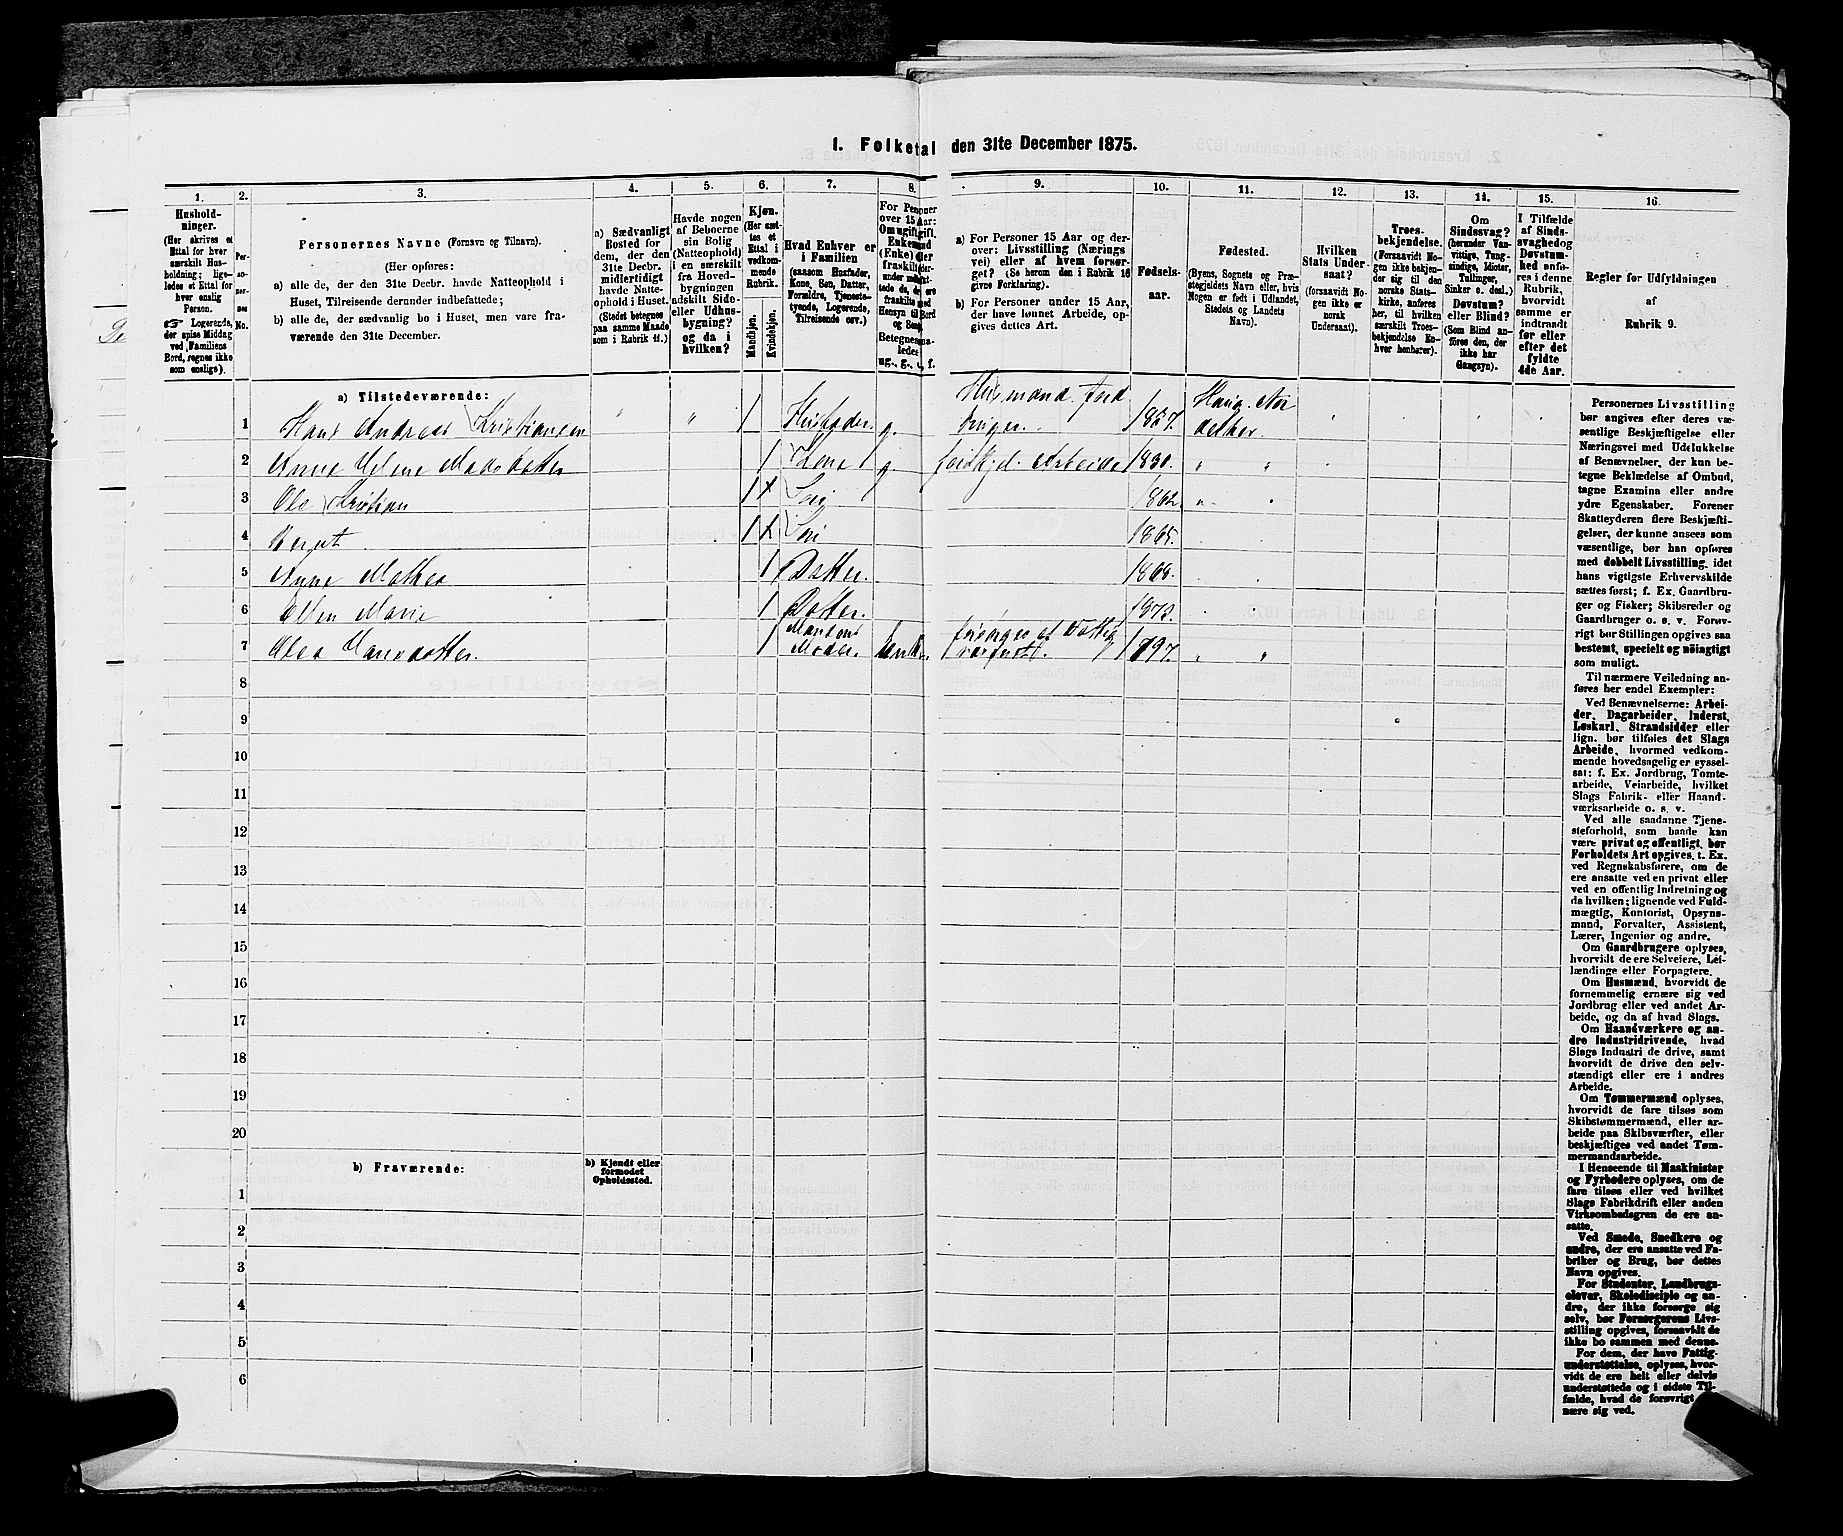 1. Folketal den 31te December 1875.
1.
2.
3.
4.
5.
6.
7.
8.
9.
10.
11.
12.
13.
14.
15.
16.
Hushold-
ninger.
(Her skrives et
Ettal for hver
særskilt Hus-
holdning; lige-
ledes et Ettal
for hver enslig
Person.
☞ Logerende,
der spise Middag
ved Familiens
Bord, regnes ikke
som enslige).
Personernes Navne (Fornavn og Tilnavn).
(Her opføres:
a) alle de, der den 31te Decbr. havde Natteophold i
Huset, Tilreisende derunder indbefattede;
b) alle de, der sædvanlig bo i Huset, men vare fra-
værende den 31te December.
a) Sædvanligt
Bosted for
dem, der den
31te Decbr.
midlertidigt
havde Natte-
ophold i Huset.
(Stedet betegnes
paa samme Maade
som i Rubrik 11.)
Havde nogen
af Beboerne
sin Bolig
(Natteophold)
i en særskilt
fra Hoved-
bygningen
adskilt Side-
eller Udhus-
bygning?
og da i
hvilken?
Kjøn.
(Her sæt-
tes et
Ettal i
vedkom-
mende
Rubrik.
Mandkjøn.
Kvindekjøn.
Hvad Enhver er
i Familien
(saasom Husfader,
Kone, Søn, Datter,
Forældre, Tjeneste-
tyende, Logerende,
Tilreisende osv.)
a) For Personer 15 Aar og der-
over: Livsstilling (Nærings
vei) eller af hvem forsør-
get? (Se herom den i Rubrik 16
givne Forklaring).
b) For Personer under 15 Aar,
der have lønnet Arbeide, op-
gives dettes Art.
Fødsels-
aar.
Fødested.
(Byens, Sognets og Præ-
stegjeldets Navn eller, hvis
Nogen er født i Udlandet,
Stedets og Landets
Navn).
Hvilken
Stats Under-
saat?
(forsaavidt No-
gen ikke er
norsk
Undersaat).
Troes-
bekjendelse.
(Forsaavidt No-
gen ikke bekjen-
der sig til den
norske Stats-
kirke, anføres
her, til hvilken
særskilt Troes-
bekjendelse En-
hver henhører).
Om
Sindssvag?
(herunder Van-
vittige, Tung-
sindige, Idioter,
Tullinger,
Sinker o. desl.)
Døvstum?
eller Blind?
(Som Blind an-
føres den, der
ikke har
Gangsyn).
I Tilfælde
af Sinds-
svaghed og
Døvstum-
hed anfø-
res i denne
Rubrik,
hvorvidt
samme er
indtraadt
før eller
efter det
fyldte
4de Aar.
Regler for Udfyldningen
af
Rubrik 9.
a) Tilstedeværende:
1 Hans Andreas Kristiansen " " 1 Husfader. g. Husmand. jord
bruger. 1827.
2 Anne Helene Madsdatter 1 Kone g 1830. " "
3 Ole Kristian 1 x Søn 1862. "
4 1 x Søn 1865.
5 Anne Mathea 1 Datter. 1868.
6 Ellen Marie 1 Datter. 1872.
7 Olea Hansdatter. 1 Mandens
Moder. Enke. 1797. " "
8
9
10
11
12
13
14
15
16
17
18
19
20
b) Fraværende:
b) Kjendt eller
formodet
Opholdssted.
1
2
3
4
5
6
Personernes Livsstilling
bør angives efter deres væ-
sentlige Beskjæftigelse eller
Næringsvei med Udelukkelse
af Benævnelser, der kun be-
tegne Beklædelse af Ombud,
tagne Examina eller andre
ydre Egenskaber. Forener
Skatteyderen flere Beskjæfti-
gelser, der kunne ansees som
væsentlige, bør han opføres
med dobbelt Livsstilling, idet
hans vigtigste Erhvervskilde
sættes først; f. Ex. Gaardbru-
ger og Fisker; Skibsreder og
Gaardbruger o. s. v. Forøv-
rigt bør Stillingen opgives saa
bestemt, specielt og nøiagtigt
som muligt.
Til nærmere Veiledning an-
føres her endel Exempler:
Ved Benævnelserne: Arbei-
der, Dagarbeider, Inderst,
Løskarl, Strandsidder eller
lign. bør tilføies det Slags
Arbeide, hvormed vedkom-
mende hovedsagelig er syssel-
sat: f. Ex. Jordbrug, Tomte-
arbeide, Veiarbeide, hvilket
Slags Fabrik- eller Haand-
værksarbeide o. s. v.
Ved alle saadanne Tjene-
steforhold, som baade kan
være privat og offentligt, bør
Forholdets Art opgives, t. Ex.
ved Regnskabsførere, om de
ere ansatte ved en privat eller
ved en offentlig Indretning og
da hvilken; lignende ved Fuld-
mægtig, Kontorist, Opsyns-
mand, Forvalter, Assistent,
Lærer, Ingeniør og andre.
Om Gaardbrugere oplyses,
hvorvidt de ere Selveiere, Lei-
lændinge eller Forpagtere.
Om Husmænd, hvorvidt de
fornemmelig ernære sig ved
Jordbrug eller ved andet Ar-
beide, og da af hvad Slags.
Om Haandværkere og an-
dre Industridrivende, hvad
Slags Industri de drive, samt
hvorvidt de drive den selv-
stændigt eller ere i andres
Arbeide.
Om Tømmermænd oplyses,
hvorvidt de fare tilsøs som
Skibstømmermænd, eller ar-
beide paa Skibsværfter, eller
beskjæftiges ved andet Tøm-
mermandsarbeide.
I Henseende til Maskinister
og Fyrbødere oplyses, om de
fare tilsøs eller ved hvilket
Slags Fabrikdrift eller anden
Virksombedsgren de ere an-
satte.
Ved Smede, Snedkere og
andre, der ere ansatte ved Fa-
briker og Brug, bør dettes
Navn opgives.
For Studenter, Landbrugs-
elever, Skoledisciple og an-
dre, der ikke forsørge sig
selv, bør Forsørgerens Livs-
stilling opgives, forsaavidt de
ikke bo sammen med denne.
For dem, der have Fattig-
understøttelse, oplyses, hvor-
vidt de ere helt eller delvis
understøttede og i sidste Til-
fælde, hvad de forøvrigt
nære sig ved.